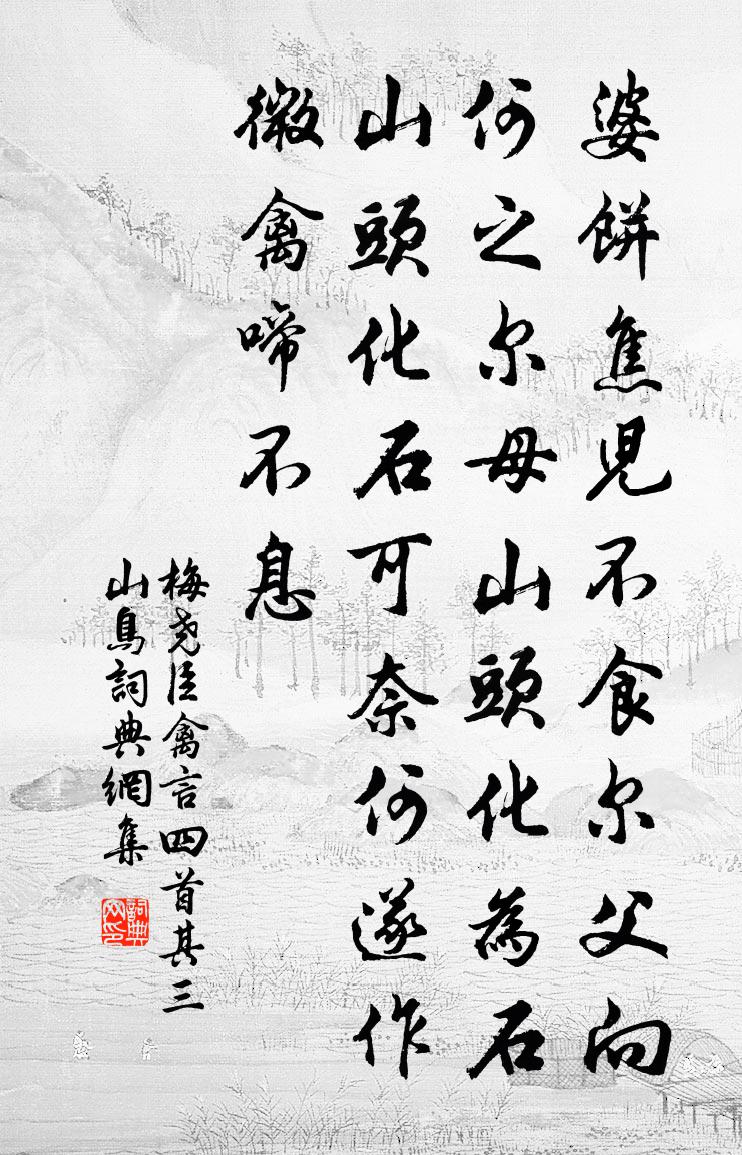 婆餅焦兒不食尔父向
何之尔母山頭化為石
山頭化石可奈何遂作
微禽啼不息
梅尧臣禽言四首其三
山鳥詞典網集
詞典
网印